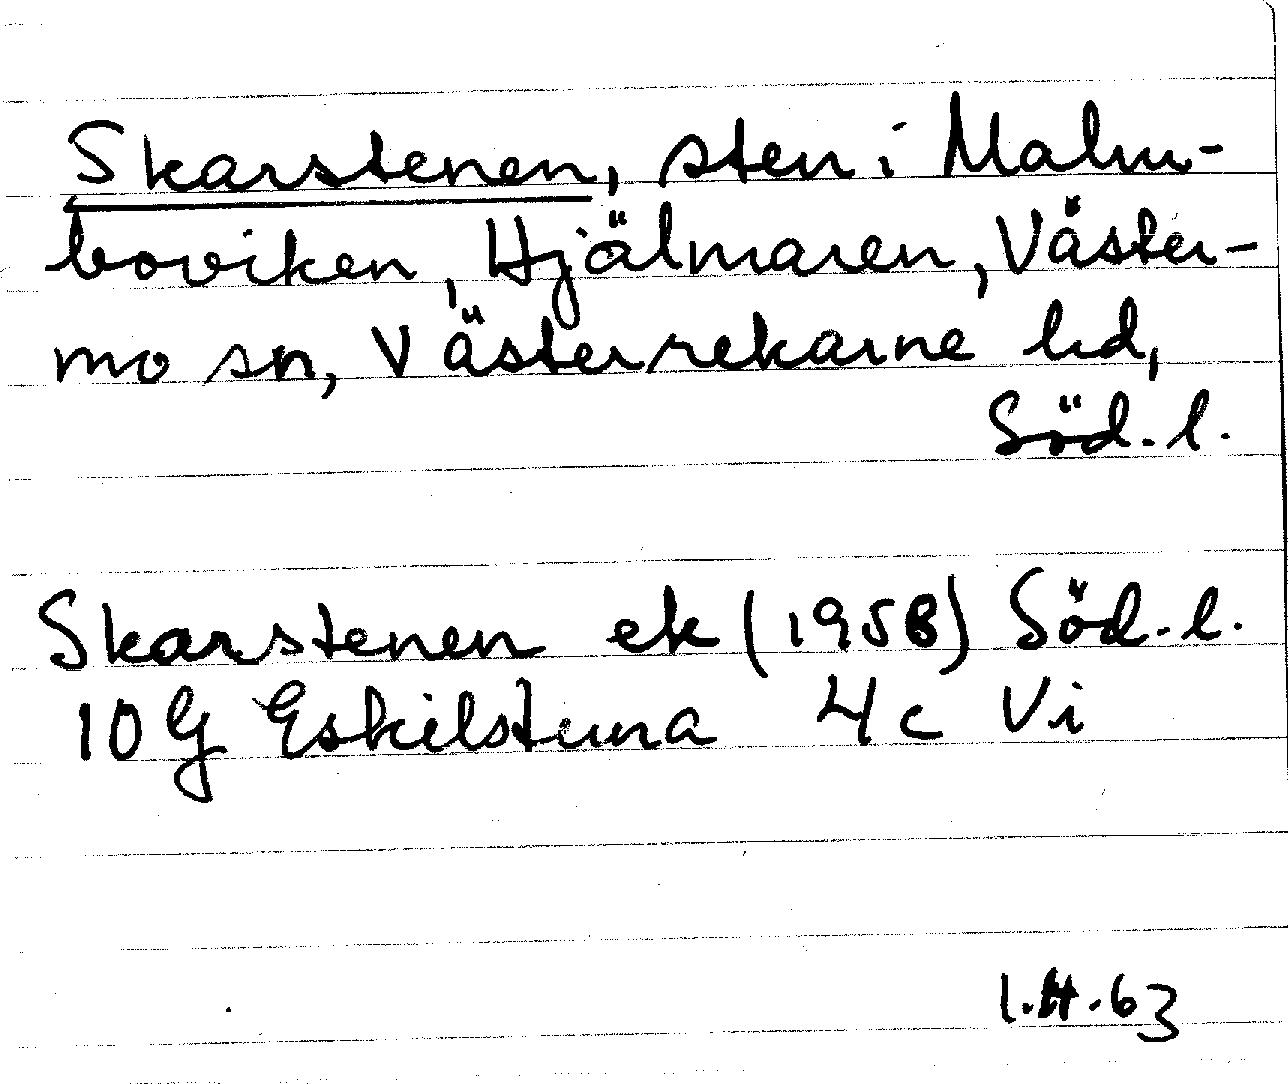 Skarstenen, sten i Malm-
boviken, Hjälmaren, Väster-
mo sn, Västerrekarne hd,
Söd. l.
Skarstenen ek (1958) Söd. l.
10G Eskilstuna 4c Vi
I.H.63